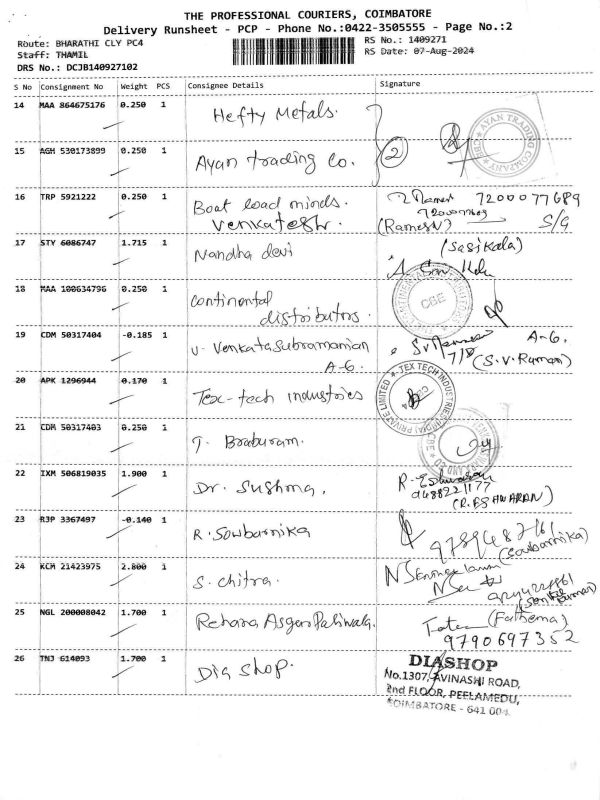 THE PROFESSIONAL COURIERS, COIMBATORE
Delivery Runsheet - PCP - Phone No.:0422-3505555 - Page No.:2
Route: BHARATHI CLY PC4
RS No.: 1409271
Staff: THAMIL
RS Date: 07-Aug-2024
DRS No.: DCJB140927102
S No Consignment No Weight PCS Consignee Details Signature
14 MAA 864675176 0.250 1 Hefty Metals.
AYAN TRADING COMPANY * CBE *
15 AGH 530173899 0.250 1 Ayan trading Co. 2
16 TRP 5921222 0.250 1 Boat load minds. 7200077689
Venkatesh. (Ramesh) S/G
17 STY 6086747 1.715 1 Nandha devi (Sasikala)
18 MAA 100634796 0.250 1 Continental
distributors. CBE
19 CDM 50317404 -0.185 1 V. Venkatasubramanian A-6.
A-6. 7/8 (S.V. Raman)
20 APK 1296944 0.170 1 Tex-tech industries
TEX TECH INDUSTRIES (INDIA) PRIVATE LIMITED
21 CDM 50317403 0.250 1 T. Braburam.
22 IXM 506819035 1.900 1 Dr. Sushma. R. Eshwaran
9488221177
(R.ESHWARAN)
23 RJP 3367497 -0.140 1 R. Sowbarnika
(Sowbarnika)
24 KCM 21423975 2.800 1 S. Chitra.
25 NGL 200008042 1.700 1 Rehana Asger Paliwala. (Fathema)
9790697352
26 TNJ 614093 1.700 1 Dia shop.
DIASHOP
No.1307, AVINASHI ROAD,
2nd FLOOR, PEELAMEDU,
COIMBATORE - 641 004.